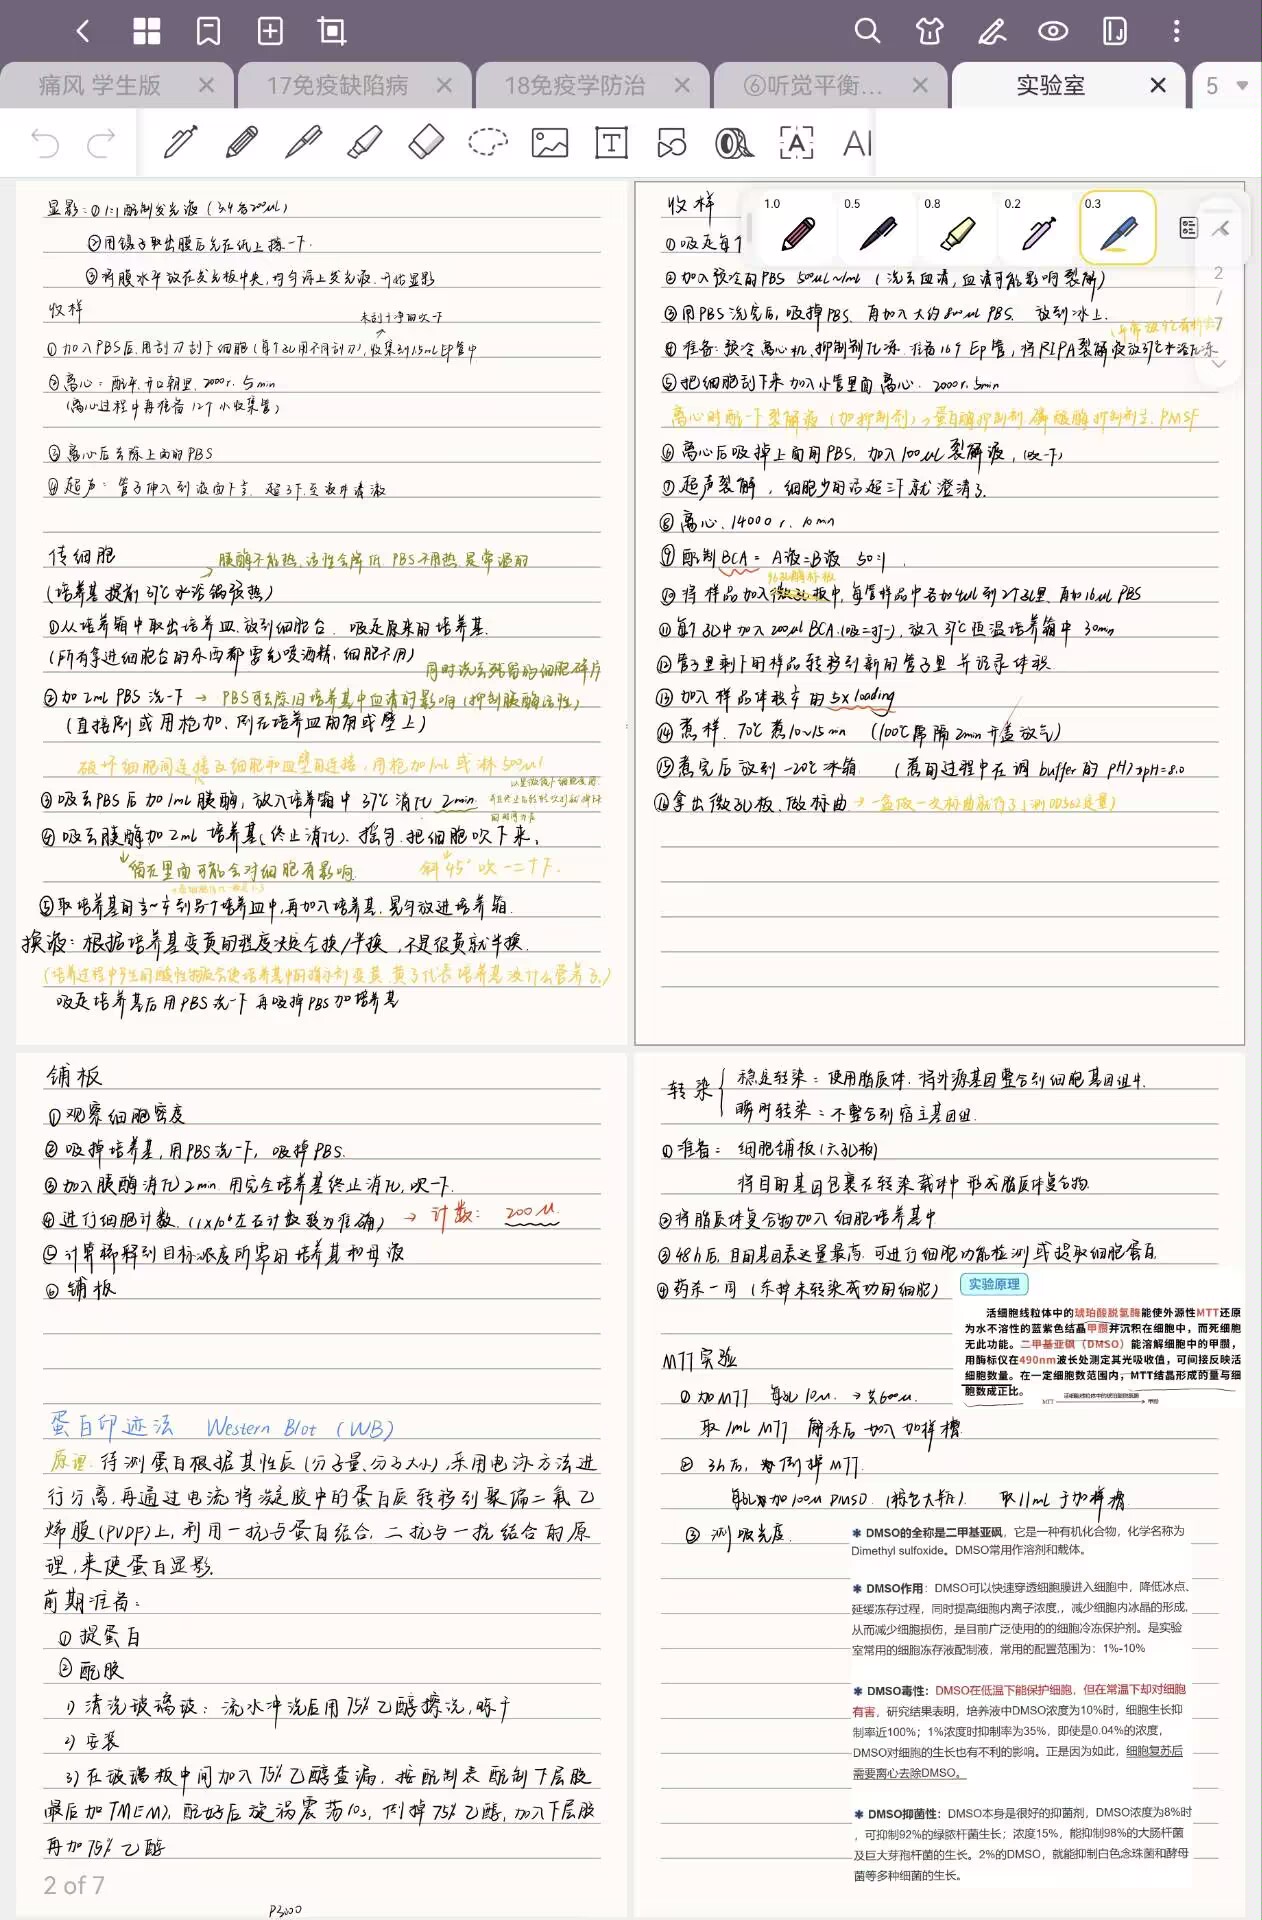 痛风 学生版
17免疫缺陷病
18免疫学防治
⑥听觉平衡...
实验室
5
显影：①1:1配制发光液
②用镊子取出膜后先在纸上擦一下.
③将膜水平放在发光板中央,均匀淌上发光液.开始显影
收样
未刮干净的吹下
①加入PBS后.用刮刀刮下细胞(每个孔用不同刮刀),收集到1.5ml EP管中
②离心：配平.开口朝里.2000r.5min
(离心过程中再准备12个小收集管)
③离心后去除上面的PBS
④超声：管子伸入到液面下
传细胞
胰酶不能热.活性会降低.PBS不用热.是常温的
(培养基提前37℃水浴锅预热)
①从培养箱中取出培养皿.放到细胞台.吸走原来的培养基.
(所有拿进细胞台的东西都需先喷酒精,细胞不用)
同时洗去残留的细胞碎片
②加2mL PBS 洗一下 → PBS可去除旧培养基中血清的影响(抑制胰酶活性)
(直接倒或用枪加、倒在培养皿的角或壁上)
破坏细胞间连接及细胞和皿壁的连接,用枪加1ml或淋500ul
③吸去PBS后加1mL胰酶,放入培养箱中37℃消化2min.
④吸去胰酶加2mL培养基(终止消化).摇匀.把细胞吹下来.
↓留在里面可能会对细胞有影响.
斜45°吹一二十下.
⑤取培养基的 到另个培养皿中,再加入培养基.晃匀放进培养箱.
换液：根据培养基变黄的程度决定全换/半换,不是很黄就半换.
(培养过程中产生的酸性物质会使培养基中的指示剂变黄.黄了代表培养基没什么营养了.)
吸走培养基后用PBS洗一下再吸掉PBS加培养基
1.0
0.5
0.8
0.2
0.3
2
/
7
收样
①吸走每个
②加入预冷的PBS 500uL~1mL (洗去血清,血清可能影响裂解)
③用PBS洗完后,吸掉PBS.再加入大约800uL PBS.放到冰上.
④准备：预冷离心机、抑制剂化冻.准备16个Ep管,将RIPA裂解液放37℃水浴化冻
⑤把细胞刮下来加入小管里面离心.2000r.5min
离心时配一下裂解液(加抑制剂)→蛋白酶抑制剂.磷酸酶抑制剂.PMSF
⑥离心后吸掉上面的PBS,加入100uL裂解液,(吹一下)
⑦超声裂解,细胞少的话超三下就澄清了.
⑧离心.14000r.10min
⑨配制BCA=A液:B液 50:1.
96孔酶标板
⑩将样品加入微孔板中,每管样品中各加4uL到2个孔里.再加16uL PBS
⑪每个孔中加入200ul BCA.(吸二打一),放入37℃恒温培养箱中30min
⑫管子里剩下的样品转移到新的管子里并记录体积
⑬加入样品体积 的5x loading
⑭煮样.70℃煮10~15min (100℃需隔2min开盖放气)
⑮煮完后放到-20℃冰箱.(煮的过程中在调buffer的PH)→pH=8.0
⑯拿出微孔板、做标曲→一盒做一次标曲就行了
铺板
①观察细胞密度
②吸掉培养基,用PBS洗一下,吸掉PBS.
③加入胰酶消化2min.用完全培养基终止消化,吹一下.
④进行细胞计数.(1x10⁶左右计数较为准确) → 计数：200u.
⑤计算稀释到目标浓度所需的培养基和母液
⑥铺板
蛋白印迹法 Western Blot (WB)
原理.待测蛋白根据其性质(分子量、分子大小),采用电泳方法进
行分离,再通过电流将凝胶中的蛋白质转移到聚偏二氟乙
烯膜(PVDF)上,利用一抗与蛋白结合,二抗与一抗结合的原
理,来使蛋白显影.
前期准备：
①提蛋白
②配胶
1)清洗玻璃板：流水冲洗后用75%乙醇擦洗,晾干
2)安装
3)在玻璃板中间加入75%乙醇查漏,按配制表配制下层胶
最后加TMEM),配好后旋涡震荡10s,倒掉75%乙醇,加入下层胶
再加75%乙醇
2 of 7
P3000
转染
稳定转染：使用脂质体.将外源基因整合到细胞基因组中.
瞬时转染：不整合到宿主基因组.
①准备：细胞铺板(六孔板)
将目的基因包裹在转染载体中形成脂质体复合物.
②将脂质体复合物加入细胞培养基中
③48h后,目的基因表达量最高.可进行细胞功能检测或提取细胞蛋白.
④药杀一周(杀掉未转染成功的细胞)
实验原理
活细胞线粒体中的琥珀酸脱氢酶能使外源性MTT还原
为水不溶性的蓝紫色结晶甲臜并沉积在细胞中，而死细胞
无此功能。二甲基亚砜（DMSO）能溶解细胞中的甲臜，
用酶标仪在490nm波长处测定其光吸收值，可间接反映活
细胞数量。在一定细胞数范围内，MTT结晶形成的量与细
胞数成正比。
MTT 活细胞线粒体中的琥珀酸脱氢酶 甲臜
MTT实验
①加MTT 每孔10u. →共600u.
取1mL MTT 解冻后加入加样槽.
②3h后,倒掉MTT.
每孔加100u DMSO. 取11mL于加样槽
③测吸光度.
✱ DMSO的全称是二甲基亚砜，它是一种有机化合物，化学名称为
Dimethyl sulfoxide。DMSO常用作溶剂和载体。
✱ DMSO作用：DMSO可以快速穿透细胞膜进入细胞中，降低冰点、
延缓冻存过程，同时提高细胞内离子浓度,，减少细胞内冰晶的形成,
从而减少细胞损伤，是目前广泛使用的的细胞冷冻保护剂。是实验
室常用的细胞冻存液配制液，常用的配置范围为：1%-10%
✱ DMSO毒性：DMSO在低温下能保护细胞，但在常温下却对细胞
有害，研究结果表明，培养液中DMSO浓度为10%时，细胞生长抑
制率近100%；1%浓度时抑制率为35%，即使是0.04%的浓度，
DMSO对细胞的生长也有不利的影响。正是因为如此，细胞复苏后
需要离心去除DMSO。
✱ DMSO抑菌性：DMSO本身是很好的抑菌剂，DMSO浓度为8%时
，可抑制92%的绿脓杆菌生长；浓度15%，能抑制98%的大肠杆菌
及巨大芽孢杆菌的生长。2%的DMSO，就能抑制白色念珠菌和酵母
菌等多种细菌的生长。